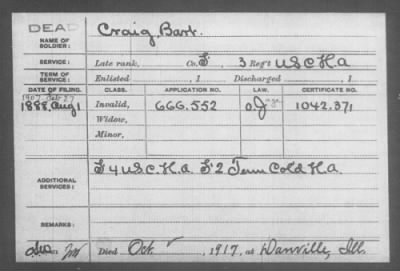 DEAD
NAME OF SOLDIER: Craig, Bart.
SERVICE: Late rank, Co. F, 3 Reg't U.S.C.H.A.
TERM OF SERVICE: Enlisted , 1 Discharged , 1
DATE OF FILING. CLASS. APPLICATION NO. LAW. CERTIFICATE NO.
1907, Feb 27
1888, Aug 1 Invalid, 666.552 1042.371
Widow,
Minor,
ADDITIONAL SERVICES: F 4 U.S.C.H.A. F 2 Tenn Cold H.A.
REMARKS:
Died Oct , 1917, at Danville, Ill.